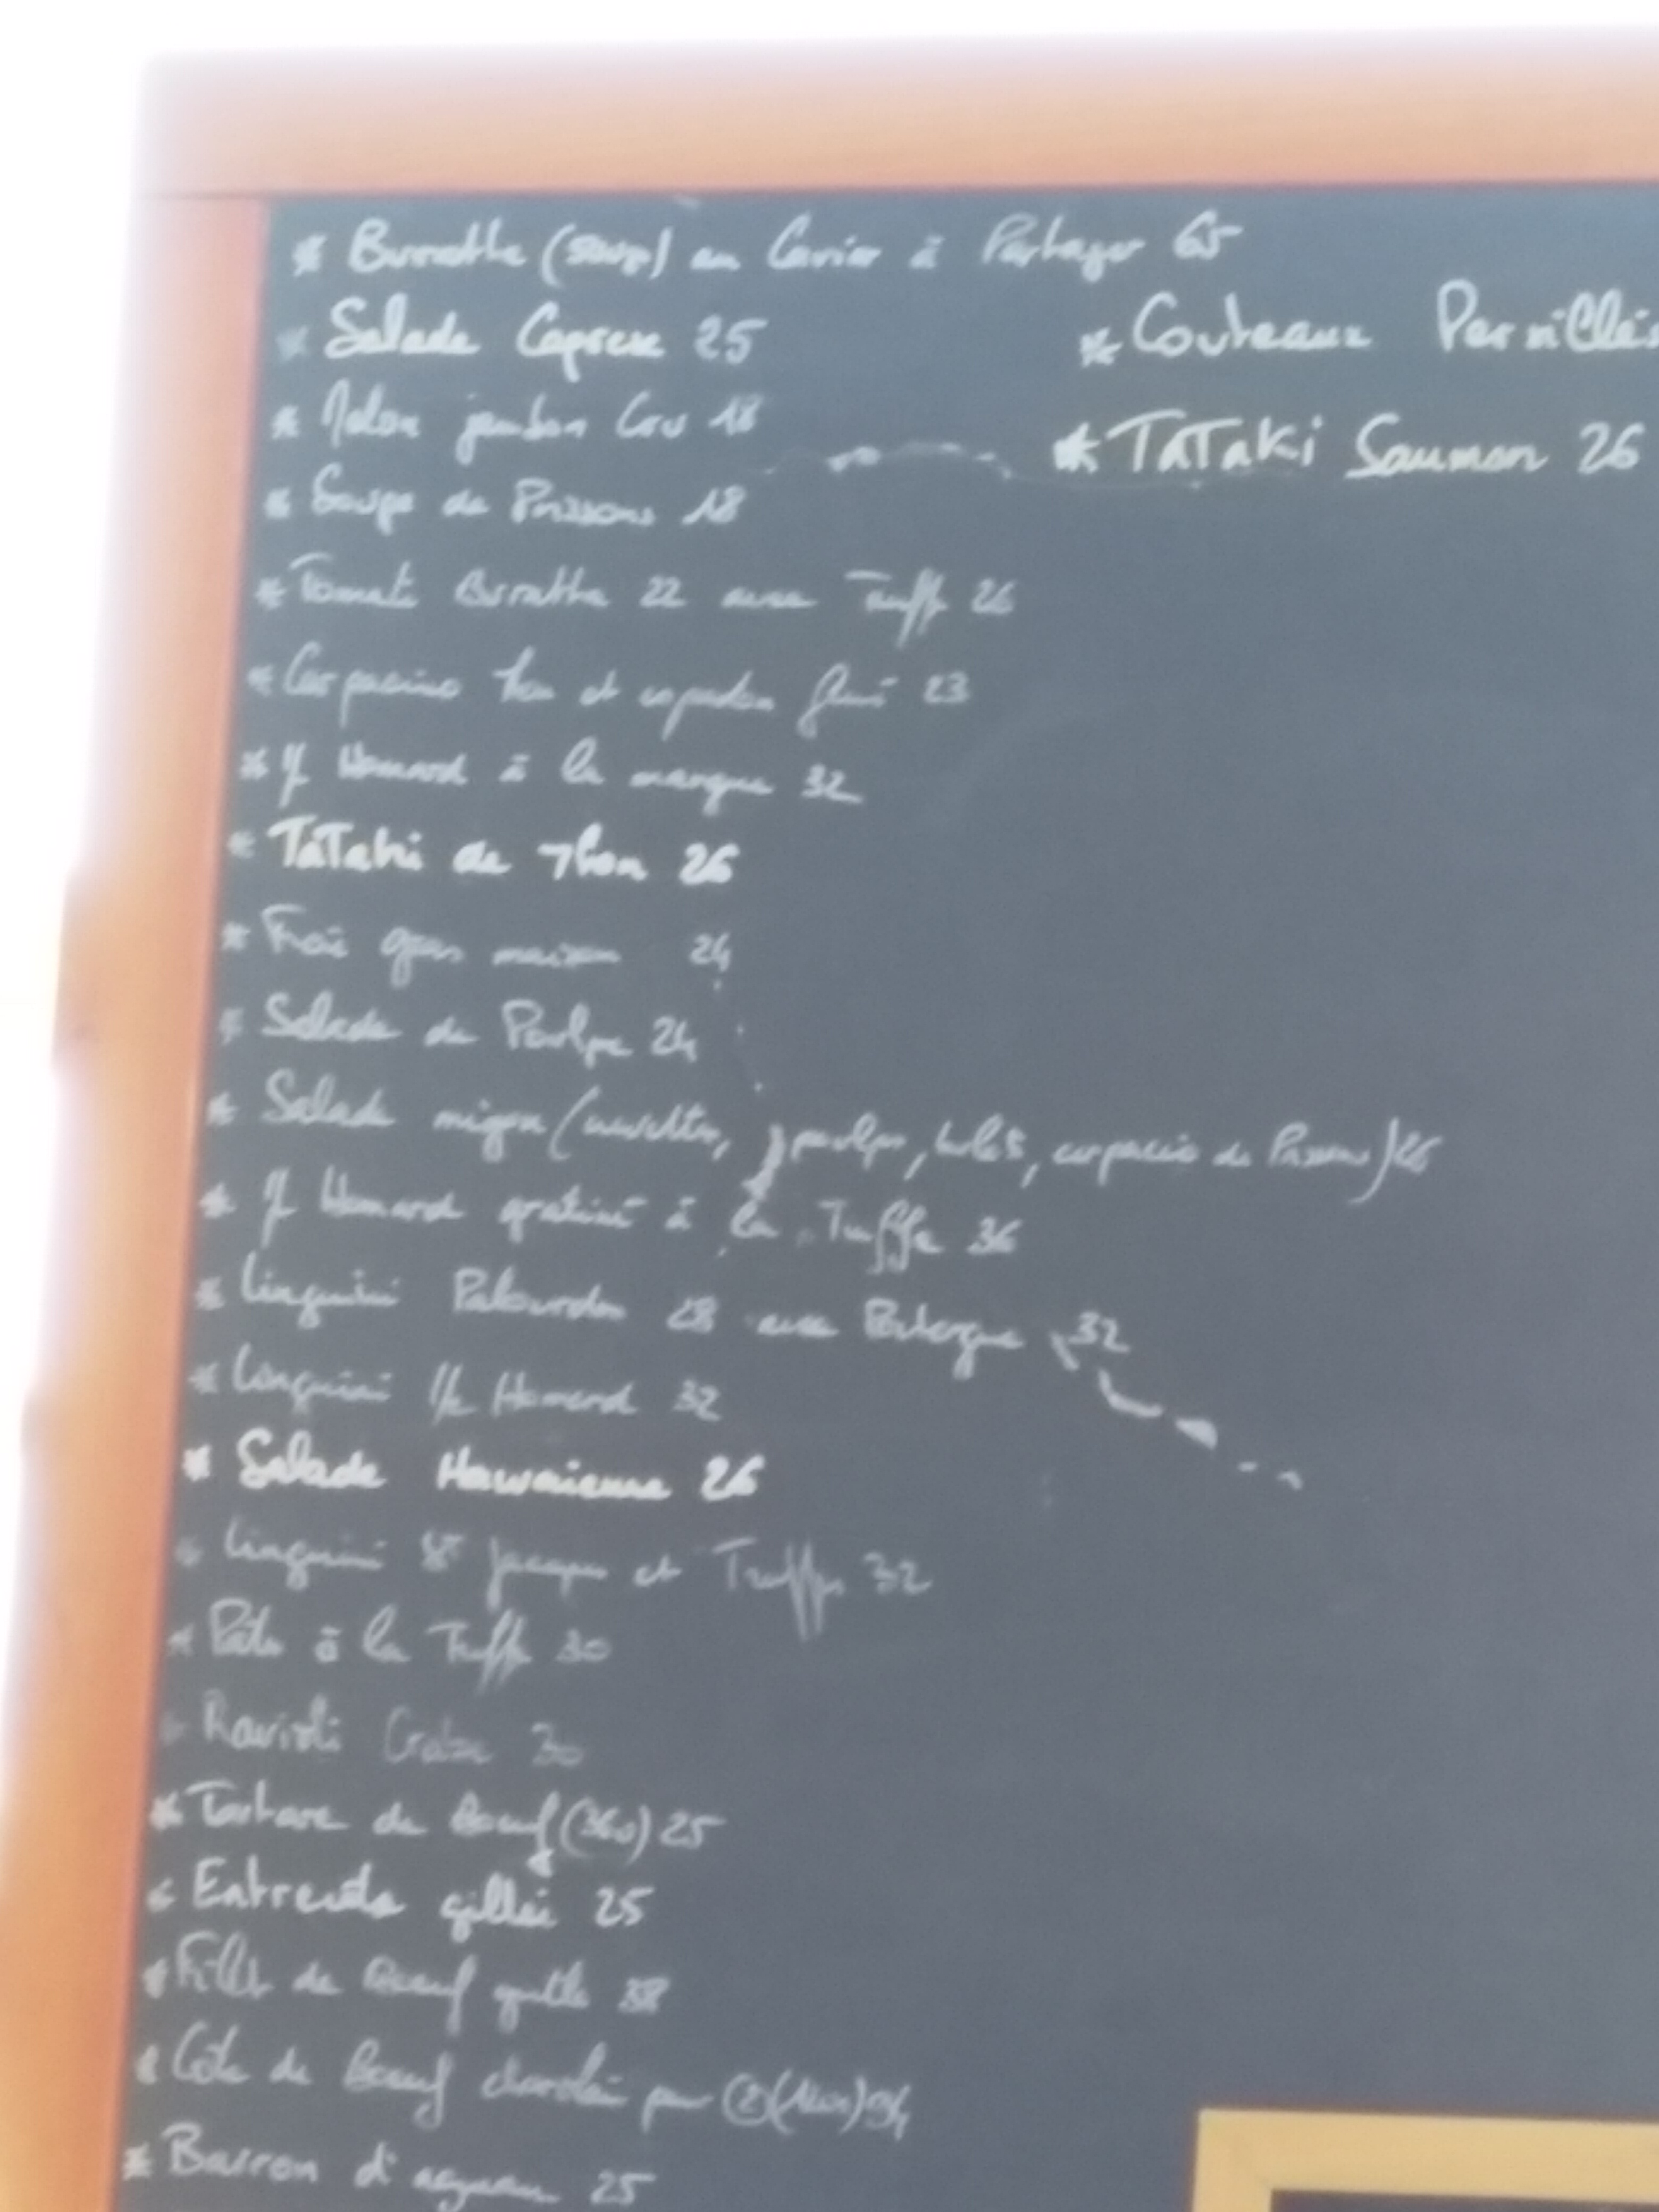 * Burratta (500gr) au Caviar à Partager 65
* Salade Caprese 25
* Melon jambon Cru 18
* Soupe de Poissons 18
* Tomate Burratta 22 avec Truffe 26
* Carpaccio thon et espadon fumé 23
* 1/2 Homard à la mangue 32
* TaTaki de Thon 26
* Foie gras maison 24
* Salade de Poulpe 24
* Salade (crevettes, poulpe, carpaccio de Poisson) 26
* 1/2 Homard gratiné à la Truffe 36
* Linguini Palourdes 28 avec Boutargue 32
* Linguini 1/2 Homard 32
* Salade Hawaienne 26
* Linguini St Jacques et Truffes 32
* Pâtes à la Truffe 30
* Ravioli Crabe 30
* Tartare de Boeuf (360) 25
* Entrecôte grillée 25
* Filet de Boeuf 38
* Côte de Boeuf charolais pour 2 94
* Barron d'agneau 25
* Couteaux Persillés
* TaTaKi Saumon 26